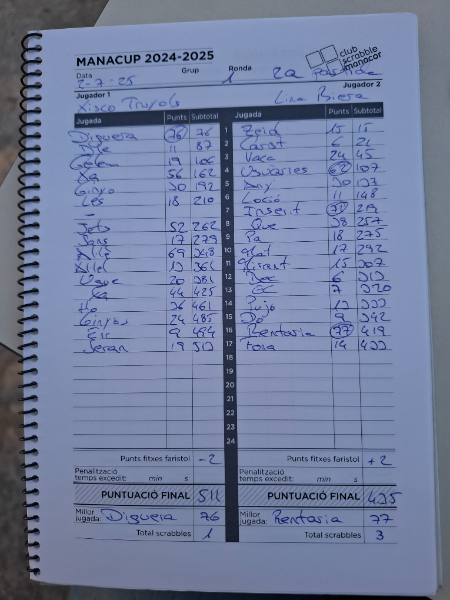 MANACUP 2024-2025
club scrabble manacor
Data Grup Ronda
2-7-25 1 2a Partida
Jugador 1 Jugador 2
Xisco Truyols Lina Biera
Jugada Punts Subtotal Jugada Punts Subtotal
Diguera 76 76 1 Zeid 15 15
11 87 2 Carat 6 21
Gelem 19 106 3 Vaca 24 45
Xa 56 162 4 Usuaries 62 107
Ginyo 30 192 5 Any 30 137
Les 18 210 6 Loció 11 148
- 7 Inserit 71 219
Jots 52 262 8 Que 38 257
Sans 17 279 9 Pa 18 275
69 348 10 17 292
13 361 11 Girant 15 307
Ugue 20 381 12 6 313
Ça 44 425 13 EC 7 320
Ho 36 461 14 Pujo 13 333
Ginyos 24 485 15 Do 9 342
Eir 9 494 16 Rentaria 77 419
Jeran 19 513 17 Fosa 14 433
18
19
20
21
22
23
24
Punts fitxes faristol -2 Punts fitxes faristol +2
Penalització temps excedit: min s Penalització temps excedit: min s
PUNTUACIÓ FINAL 511 PUNTUACIÓ FINAL 435
Millor jugada: Diguera 76 Millor jugada: Rentaria 77
Total scrabbles 1 Total scrabbles 3